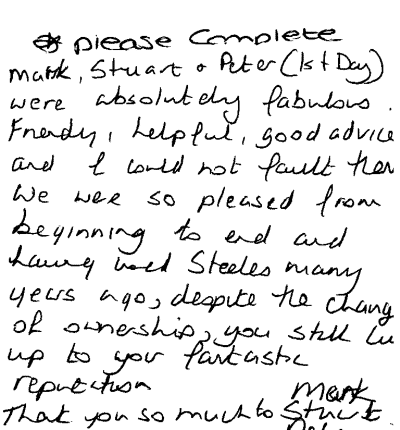 please Complete
Mark, Stuart & Peter (1st Day)
were absolutely fabulous.
Friendly, helpful, good advice
and I could not fault them
We were so pleased from
beginning to end and
having used Steeles many
years ago, despite the chang
of ownership, you still li
up to your fantastic
reputation
Mark
Thank you so much to Stuart.